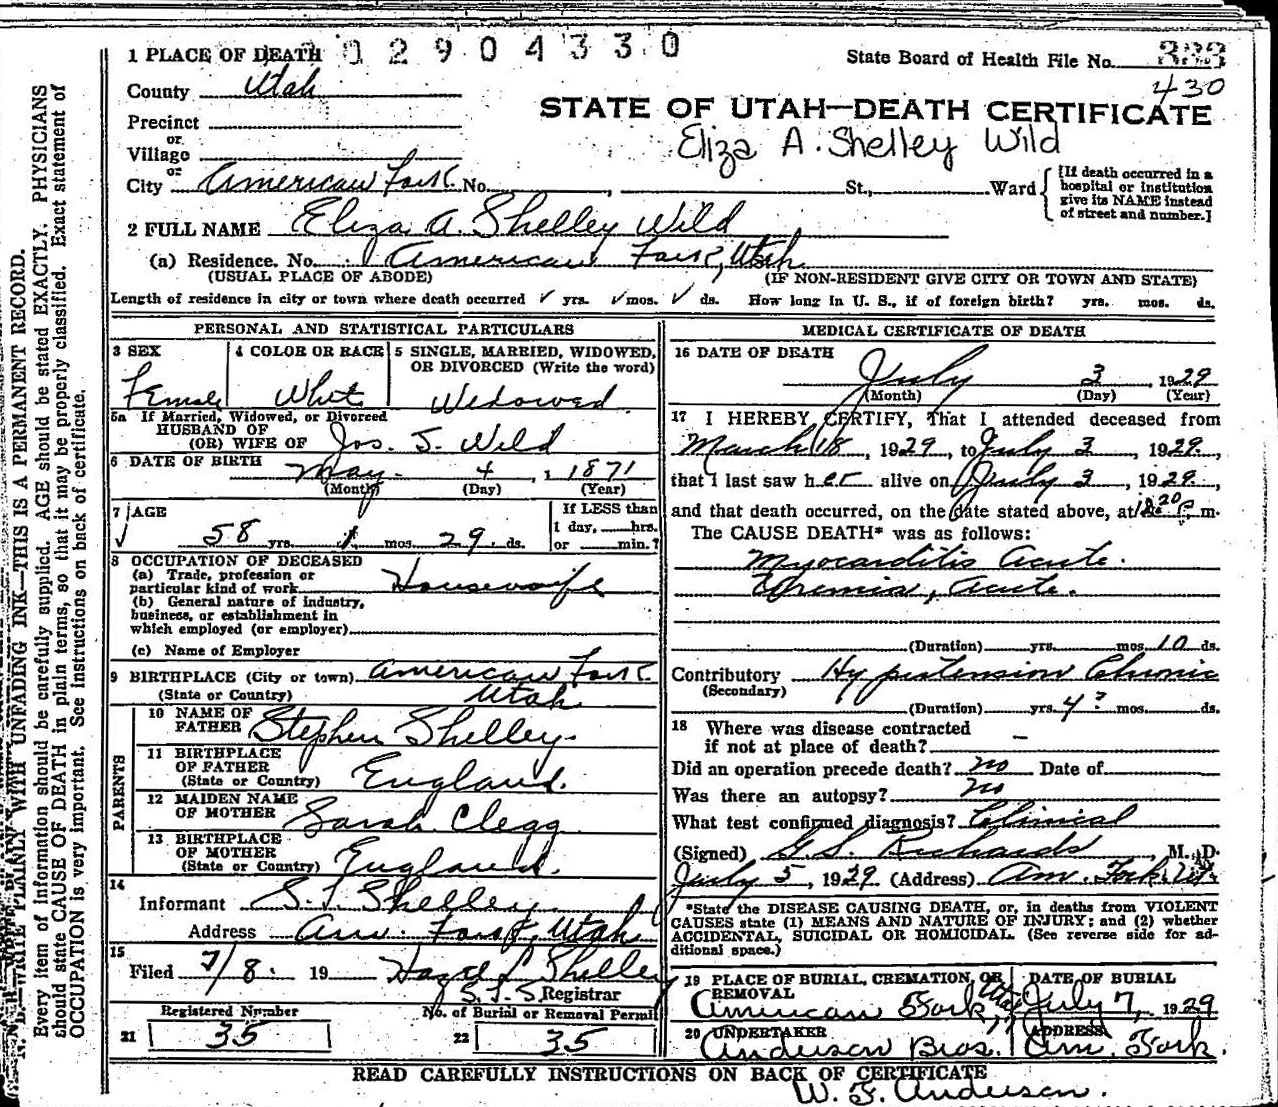 1 PLACE OF DEATH 02904330
State Board of Health File No. 333
430
County Utah
STATE OF UTAH—DEATH CERTIFICATE
Precinct
or
Village
Eliza A. Shelley Wild
or
City American Fork No. , St., Ward
[If death occurred in a
hospital or institution
give its NAME instead
of street and number.]
2 FULL NAME Eliza A. Shelley Wild
(a) Residence. No. American Fork, Utah
(USUAL PLACE OF ABODE) (IF NON-RESIDENT GIVE CITY OR TOWN AND STATE)
Length of residence in city or town where death occurred ✓ yrs. ✓ mos. ✓ ds. How long in U. S., if of foreign birth? yrs. mos. ds.
PERSONAL AND STATISTICAL PARTICULARS
3 SEX
Female
4 COLOR OR RACE
White
5 SINGLE, MARRIED, WIDOWED,
OR DIVORCED (Write the word)
Widowed
5a If Married, Widowed, or Divorced
HUSBAND OF
(OR) WIFE OF Jos. J. Wild
6 DATE OF BIRTH May 4, 1871
(Month) (Day) (Year)
7 AGE
58 yrs. 1 mos. 29 ds.
If LESS than
1 day, hrs.
or min.?
8 OCCUPATION OF DECEASED
(a) Trade, profession or
particular kind of work Housewife
(b) General nature of industry,
business, or establishment in
which employed (or employer)
(c) Name of Employer
9 BIRTHPLACE (City or town) American Fork
(State or Country) Utah
PARENTS
10 NAME OF
FATHER Stephen Shelley
11 BIRTHPLACE
OF FATHER
(State or Country) England.
12 MAIDEN NAME
OF MOTHER Sarah Clegg
13 BIRTHPLACE
OF MOTHER
(State or Country) England.
14
Informant S. T. Shelley
Address Am. Fork, Utah
15
Filed 7/8. 19 Hazel L Shelley
S.L.S. Registrar
Registered Number
21 35
No. of Burial or Removal Permit
22 35
MEDICAL CERTIFICATE OF DEATH
16 DATE OF DEATH
July 3, 1929
(Month) (Day) (Year)
17 I HEREBY CERTIFY, That I attended deceased from
March 18, 1929, to July 3, 1929,
that I last saw her alive on July 3, 1929,
and that death occurred, on the date stated above, at 12:20 P. m.
The CAUSE DEATH* was as follows:
Myocarditis acute.
Uremia, acute.
(Duration) yrs. mos. 10 ds.
Contributory Hypertension Chronic
(Secondary)
(Duration) yrs. 4? mos. ds.
18 Where was disease contracted
if not at place of death? –
Did an operation precede death? no Date of
Was there an autopsy? no
What test confirmed diagnosis? Clinical
(Signed) G. S. Richards, M. D.
July 5, 1929 (Address) Am. Fork. Ut.
*State the DISEASE CAUSING DEATH, or, in deaths from VIOLENT
CAUSES state (1) MEANS AND NATURE OF INJURY; and (2) whether
ACCIDENTAL, SUICIDAL OR HOMICIDAL. (See reverse side for ad-
ditional space.)
19 PLACE OF BURIAL, CREMATION, OR
REMOVAL
American Fork, Utah
DATE OF BURIAL
July 7, 1929
20 UNDERTAKER
Anderson Bros.
ADDRESS
Am. Fork.
READ CAREFULLY INSTRUCTIONS ON BACK OF CERTIFICATE
W. F. Anderson.
N. B.—WRITE PLAINLY WITH UNFADING INK—THIS IS A PERMANENT RECORD.
Every item of information should be carefully supplied. AGE should be stated EXACTLY. PHYSICIANS
should state CAUSE OF DEATH in plain terms, so that it may be properly classified. Exact statement of
OCCUPATION is very important. See instructions on back of certificate.